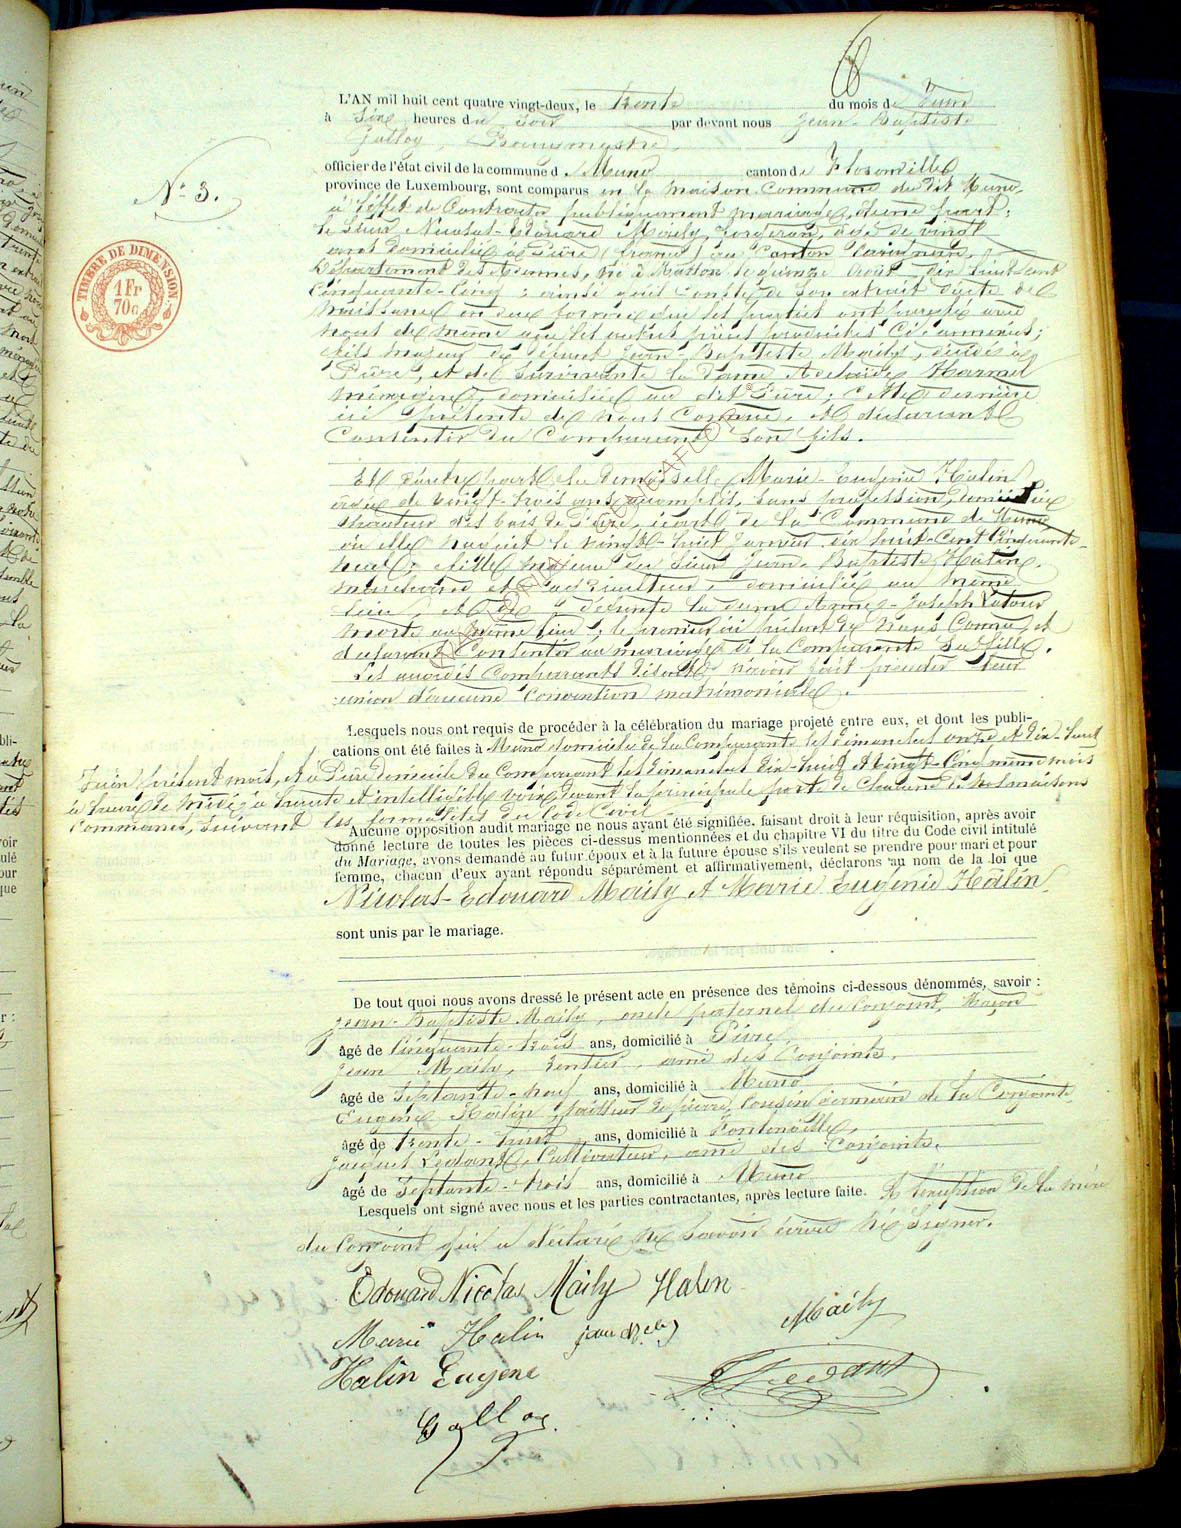 L'AN mil huit cent quatre vingt-deux, le trente du mois de Juin
à Six heures du Soir par devant nous Jean-Baptiste
Galloy, Bourgmestre,
officier de l'état civil de la commune de Muno canton de Florenville
province de Luxembourg, sont comparus en la maison Commune du dit Muno,
N° 3.
à l'effet de Contracter publiquement mariage, d'une part,
le Sieur Nicolas-Edouard Maily, forgeron, âgé de vingt
ans domicilié à Pure (france) au Canton Carignan,
Département des Ardennes, né à Matton le quinze Août dix huit Cent
Cinquante-Cinq; ainsi qu'il Conste de son extrait d'acte de
naissance en due forme
nous de même que les autres pièces produites Ci-annexées;
fils majeur de défunt Jean-Baptiste Maily, décédé à
Pure, et de Survivante la Dame Adelaide Harmel
ménagère, domiciliée au dit Pure; Cette dernière
ici présente de nous Connue, et déclarant
Consentir du Comparant Son fils.
TIMBRE DE DIMENSION
1 Fr
70c
Et d'autre part la Demoiselle Marie-Eugénie Halin
âgée de vingt-trois ans accomplis, Sans profession, domiciliée
hauteur des bois de Pure, écart de la Commune de Muno
où elle naquit le vingt-huit Janvier dix huit-Cent Cinquante-
neuf; fille majeure du Sieur Jean-Baptiste Halin,
et agriculteur domicilié au même
lieu, et de défunte la dame Anne-Joseph Latour
morte au même lieu; le premier ici présent de nous Connu et
déclarant Consentir au mariage de la Comparante Sa fille.
Les Comparants n'avoir fait précéder leur
union d'aucune Convention matrimoniale.
Lesquels nous ont requis de procéder à la célébration du mariage projeté entre eux, et dont les publi-
cations ont été faites à Muno domicile de la Comparante les dimanches onze et dix-huit
Juin présent mois, et à Pure domicile du Comparant les dimanches dix-huit et vingt-Cinq même mois
à heure de midi, à haute et intelligible voix, devant la principale porte de Chacune de nos maisons
Communes, suivant les formalités du Code Civil.
Aucune opposition audit mariage ne nous ayant été signifiée, faisant droit à leur réquisition, après avoir
donné lecture de toutes les pièces ci-dessus mentionnées et du chapitre VI du titre du Code civil intitulé
du Mariage, avons demandé au futur époux et à la future épouse s'ils veulent se prendre pour mari et pour
femme, chacun d'eux ayant répondu séparément et affirmativement, déclarons au nom de la loi que
Nicolas-Edouard Maily et Marie Eugénie Halin,
sont unis par le mariage.
De tout quoi nous avons dressé le présent acte en présence des témoins ci-dessous dénommés, savoir :
Jean-Baptiste Maily, oncle paternel du Conjoint, Maçon
âgé de Cinquante-trois ans, domicilié à Pure,
Jean Maily, Rentier, ami des Conjoints,
âgé de Septante-neuf ans, domicilié à Muno
Eugène Halin, tailleur de pierre, Cousin germain de la Conjointe,
âgé de trente-huit ans, domicilié à Fontenoille,
Jacques Ledant, Cultivateur, ami des Conjoints.
âgé de Septante-trois ans, domicilié à Muno
Lesquels ont signé avec nous et les parties contractantes, après lecture faite. A l'exception de la mère
du Conjoint qui a déclaré ne Savoir écrire ni Signer.
Edouard Nicolas Maily Halin
Marie Halin Maily
Halin Eugene J Ledant
Galloy